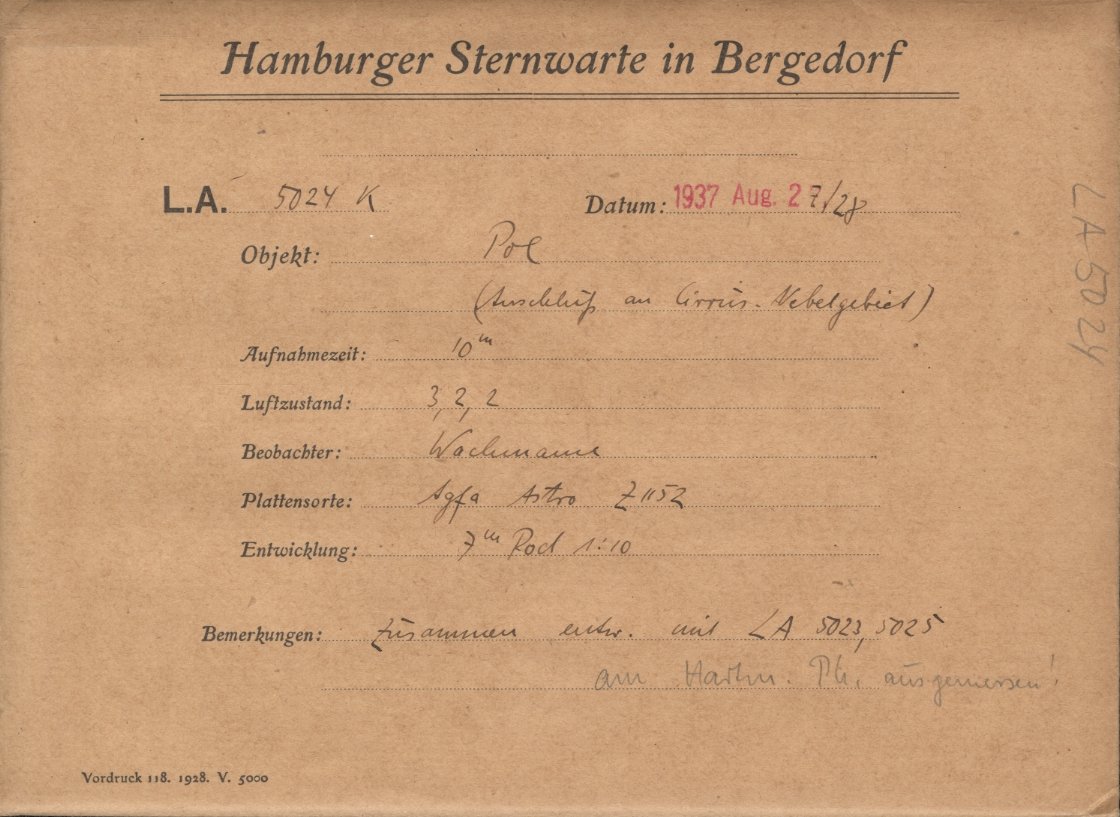 Hamburger Sternwarte in Bergedorf
L.A. 5024 K
Datum: 1937 Aug. 27/28
Objekt: Pol
(Anschluß an Cirrus-Nebelgebiet)
Aufnahmezeit: 10m
Luftzustand: 3, 2, 2
Beobachter: Wachmann
Plattensorte: Agfa Astro Z 1152
Entwicklung: 7m Rod 1:10
Bemerkungen: zusammen entw. mit LA 5023, 5025
am Hartm. Ph. ausgemessen!
Vordruck 118. 1928. V. 5000
LA 5024